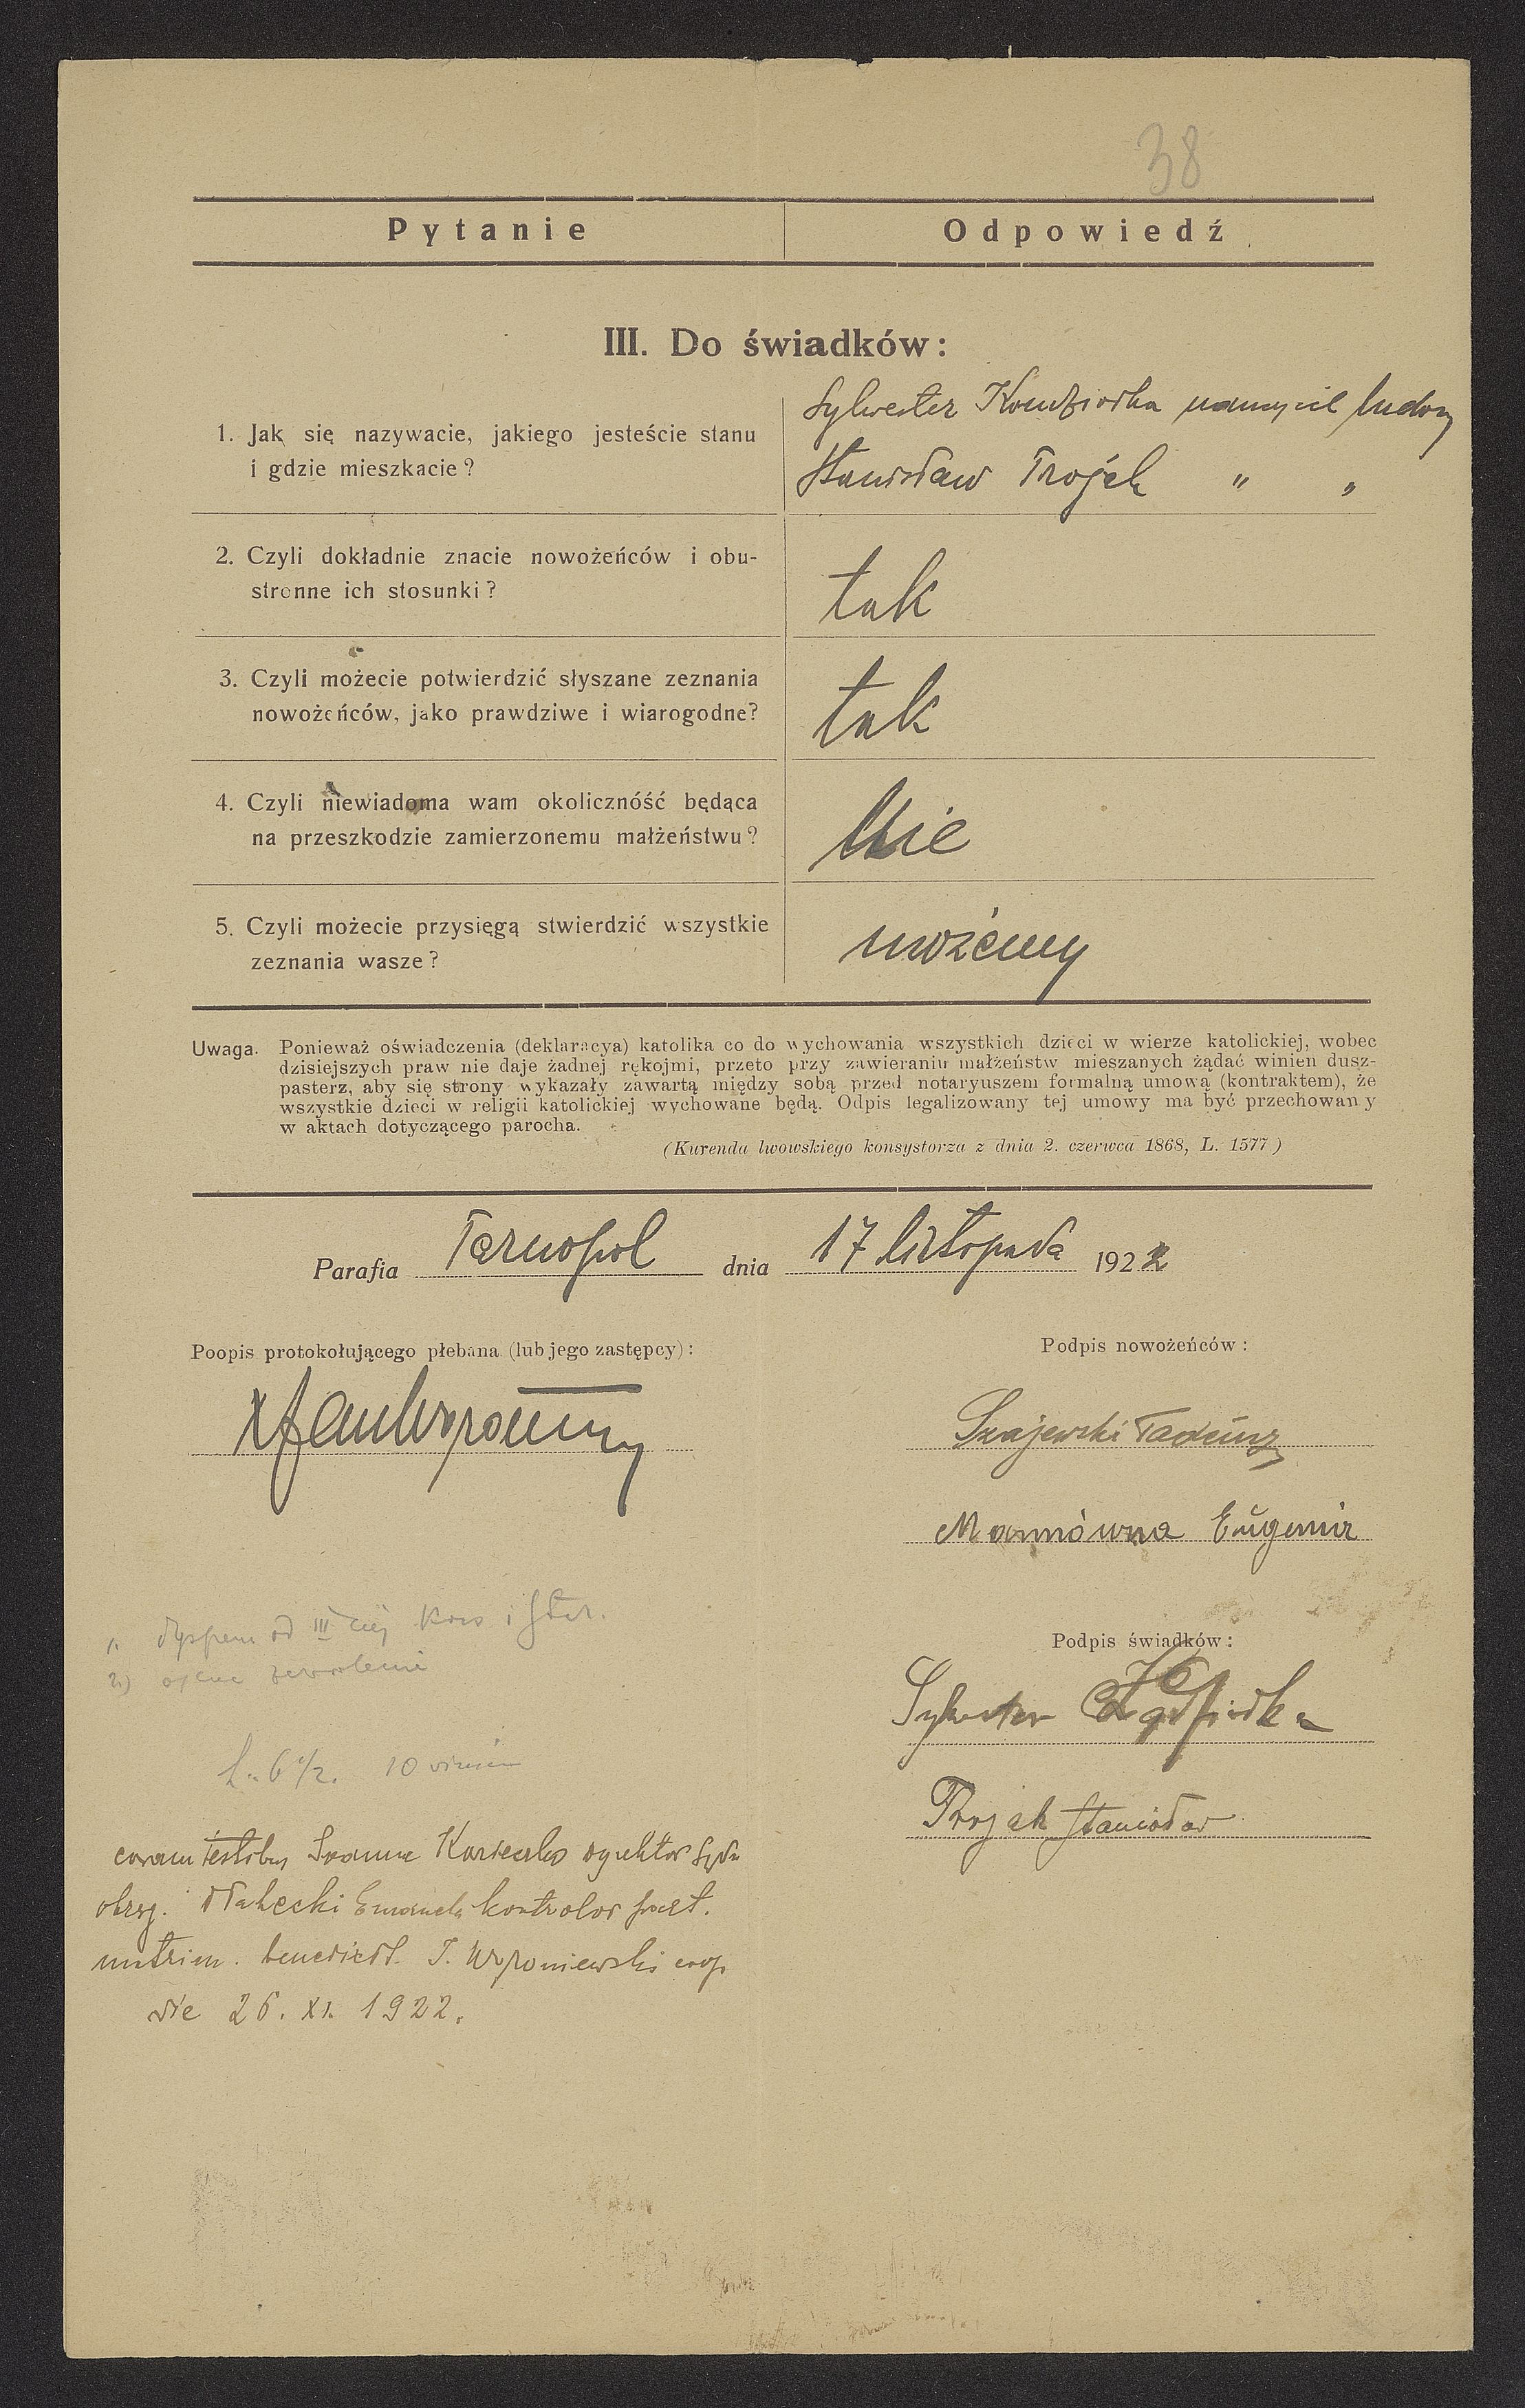 38
Pytanie Odpowiedź
III. Do świadków:
1. Jak się nazywacie, jakiego jesteście stanu
i gdzie mieszkacie?
Sylwester Kondziołka nauczyciel ludowy
Stanisław Trojak " "
2. Czyli dokładnie znacie nowożeńców i obu-
stronne ich stosunki?
tak
3. Czyli możecie potwierdzić słyszane zeznania
nowożeńców, jako prawdziwe i wiarogodne?
tak
4. Czyli niewiadoma wam okolicznóść będąca
na przeszkodzie zamierzonemu małżeństwu?
Nie
5. Czyli możecie przysięgą stwierdzić wszystkie
zeznania wasze?
możemy
Uwaga. Ponieważ oświadczenia (deklaracya) katolika co do wychowania wszystkich dzieci w wierze katolickiej, wobec
dzisiejszych praw nie daje żadnej rękojmi, przeto przy zawieraniu małżeństw mieszanych żądać winien dusz-
pasterz, aby się strony wykazały zawartą między sobą przed notaryuszem formalną umową (kontraktem), że
wszystkie dzieci w religii katolickiej wychowane będą. Odpis legalizowany tej umowy ma być przechowany
w aktach dotyczącego parocha.
(Kurenda lwowskiego konsystorza z dnia 2. czerwca 1868, L. 1577)
Parafia Tarnopol dnia 17 listopada 1922
Poopis protokołującego plebana (lub jego zastępcy):
Podpis nowożeńców:
Szajewski Tadeusz
Mannówna Eugenia
1. dyspens od III ciej
2.) ojca zezwolenie
Podpis świadków:
Sylwester
Trojak Stanisław
10
coram testibus Joanne dyrektor
okręg. Małecki kontrolor poczt.
matrim. benedixit J. coop
die 26. XI. 1922.